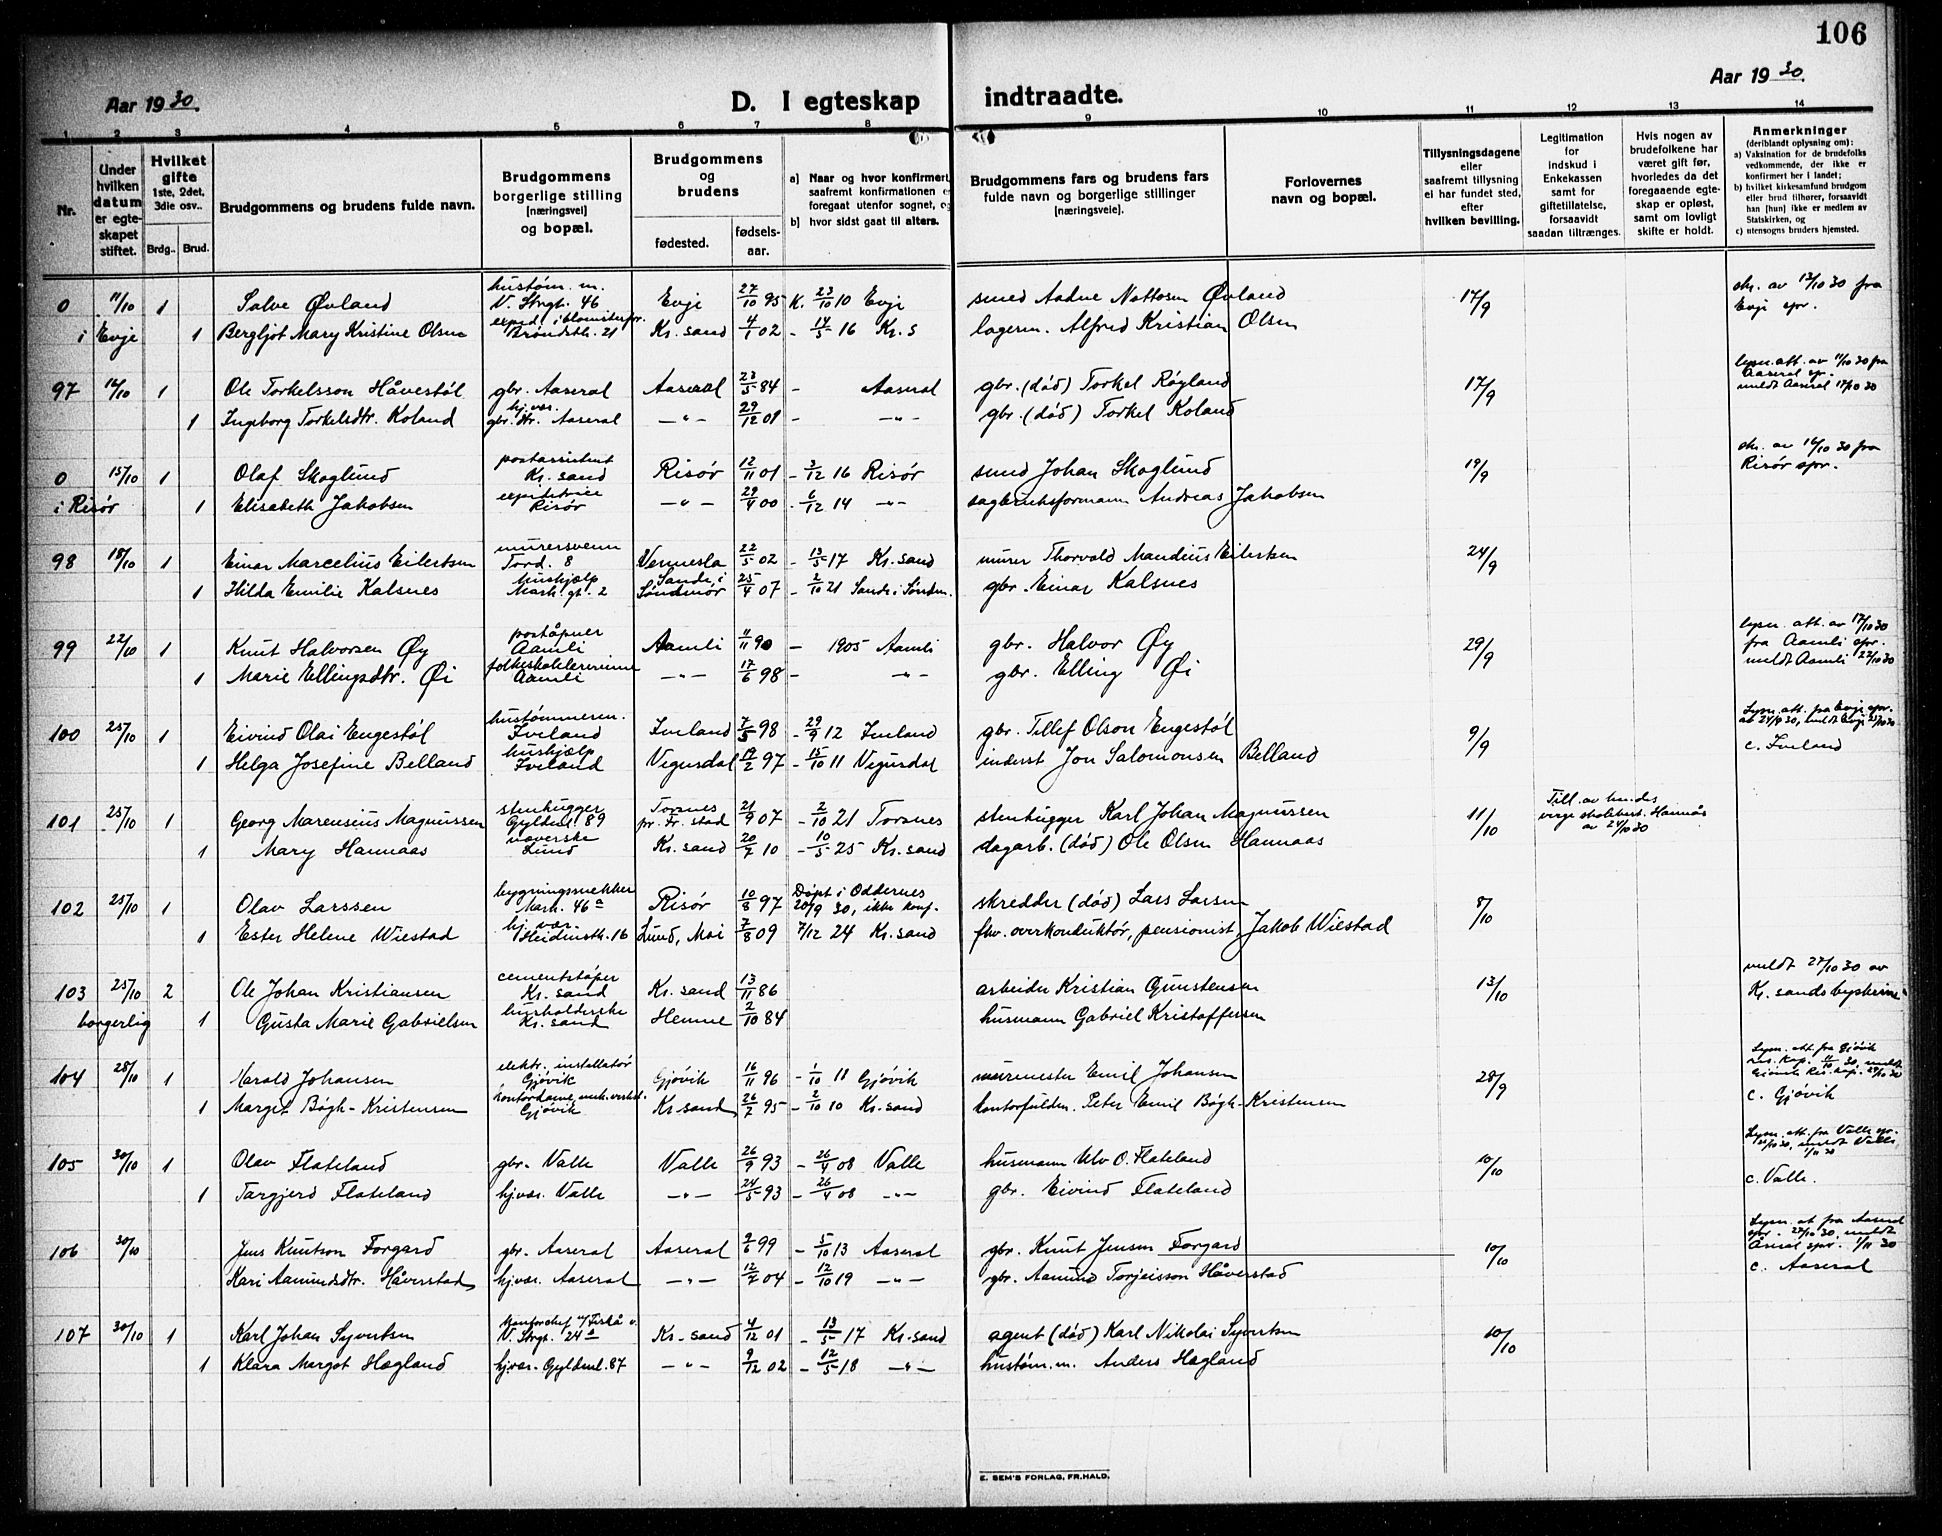 106
Aar 1930.
D. I egteskap indtraadte.
Aar 1930.
1 2 3 4 5 6 7 8 9 10 11 12 13 14
Nr.
Under hvilken datum er egteskapet stiftet.
Hvilket gifte 1ste, 2det, 3die osv..
Brdg.. Brud.
Brudgommens og brudens fulde navn.
Brudgommens borgerlige stilling [næringsvei] og bopæl.
Brudgommens og brudens
fødested. fødsels-aar.
a) Naar og hvor konfirmert, saafremt konfirmationen er foregaaet utenfor sognet, og
b) hvor sidst gaat til alters.
Brudgommens fars og brudens fars fulde navn og borgerlige stillinger [næringsveie].
Forlovernes navn og bopæl.
Tillysningsdagene eller saafremt tillysning ei har fundet sted, efter hvilken bevilling.
Legitimation for indskud i Enkekassen samt for giftetillatelse, forsaavidt saadan tiltrænges.
Hvis nogen av brudefolkene har været gift før, hvorledes da det foregaaende egteskap er opløst, samt om lovligt skifte er holdt.
Anmerkninger (deriblandt oplysning om):
a) Vaksination for de brudefolks vedkommende, der ikke er konfirmert her i landet;
b) hvilket kirkesamfund brudgom eller brud tilhører, forsaavidt han [hun] ikke er medlem av Statskirken, og
c) utensogns bruders hjemsted.
0 11/10 1 Salve Øvland hustøm. m. V. Strgt. 46 Evje 27/10 95 K. 23/10 10 Evje smed Aadne Nottosen Øvland 17/9 sk. av 13/10 30 fra Evje spr.
i Evje 1 Bergljot Mary Kristine Olsen exped. i blomsterfor. Brøndstr. 21 Kr. sand 4/1 02 - 14/5 16 Kr. S lagerm. Alfred Kristian Olsen
97 16/10 1 Ole Torkelsson Håvestøl gbr. Aaseral Aaseral 23/5 84 - Aaseral gbr. (død) Torkel Røyland 17/9 lysn. att. av 11/10 30 fra Aaseral spr. meldt Aaseral 17/10 30
1 Ingeborg Torkelsdtr. Koland hj.vær. gbr. dtr. Aaseral — " — 29/12 01 - — " — gbr. (død) Torkel Koland
0 15/10 1 Olaf Skoglund postassistent Kr. sand Risør 12/11 01 - 3/12 16 Risør smed Johan Skoglund 19/9 sk. av 16/10 30 fra Risør spr.
i Risør 1 Elisabeth Jakobsen expeditrice Risør — " — 29/4 00 - 6/12 14 — " — sagbruksformann Andreas Jakobsen
98 18/10 1 Einar Marcelius Eilertsen murersvenn Tord. 8 Vennesla 22/5 02 - 13/5 17 Kr. sand murer Thorvald Mandius Eilertsen 24/9
1 Hilda Emilie Kalsnes hushjælp Mark. gt. 2 Sande i Søndmør 25/4 07 - 2/10 21 Sande i Søndm. gbr. Einar Kalsnes
99 22/10 1 Knut Halvorsen Øy poståpner Aamli Aamli 11/11 90 - 1905 Aamli gbr. Halvor Øy 29/9 lysn. att. av 17/10 30 fra Aamli spr. meldt Aamli 22/10 30
1 Marie Ellingsdtr. Øi folkeskolelærerinne Aamli — " — 17/6 98 - — " — gbr. Elling Øi
100 25/10 1 Eivind Olai Engestøl hustømmerm. Iveland Iveland 7/5 98 - 29/9 12 Iveland gbr. Tellef Olson Engestøl 9/9 Lysn. att. fra Evje spr. av 24/9 30, meldt Evje 25/10 30
1 Helga Josefine Belland hushjælp Iveland Vegusdal 19/2 97 - 15/10 11 Vegusdal inderst Jon Salomonsen Belland c. Iveland
101 25/10 1 Georg Marensius Magnussen stenhugger Gyldenl. 89 Torsnes pr. Fr. stad 21/9 07 - 2/10 21 Torsnes stenhugger Karl Johan Magnussen 11/10 Till. av hendes verge skolebest. Hannås av 24/10 30
1 Mary Hannaas væverske Lund Kr. sand 20/7 10 - 10/5 25 Kr. sand dagarb. (død) Ole Olsen Hannaas
102 25/10 1 Olav Larssen bygningssnekker Mark. 46 a Risør 10/8 97 Døpt i Oddernes 20/9 30, ikke konf. skredder (død) Lars Larsen 8/10
1 Ester Helene Wiestad hj. vær. Heidinstr. 16 Lund, Moi 7/8 09 7/12 24 Kr. sand fhv. overkonduktør, pensionist, Jakob Wiestad
103 25/10 2 Ole Johan Kristiansen cementstøper Kr. sand Kr. sand 13/11 86 arbeider Kristian Gunstensen 13/10 meldt 27/10 30 av Kr. sands byskriver
borgerlig 1 Gusta Marie Gabrielsen husholderske Kr. sand Hemne 2/10 84 husmann Gabriel Kristoffersen
104 28/10 1 Harald Johansen elektr. installatør Gjøvik Gjøvik 16/11 96 - 1/10 11 Gjøvik murmester Emil Johansen 28/9 Lysn. att. fra Gjøvik res. kap. 11/10 30, meldt Gjøvik Res. kap. 29/10 30
1 Margit Bøgh-Kristensen kontordame mek. verkst. Gjøvik Kr. sand 26/7 95 - 2/10 10 Kr. sand kontorfuldm. Peter Emil Bøgh-Kristensen c. Gjøvik
105 30/10 1 Olav Flateland gbr. Valle Valle 26/9 93 - 26/4 08 Valle husmann Ulv O. Flateland 10/10 Lysn. att. fra Valle spr. 1/11 30
1 Targjerd Flateland hj.vær. Valle — " — 24/5 93 - 26/4 08 — " — gbr. Eivind Flateland c. Valle.
106 30/10 Jens Knutson Forgard gbr. Aaseral Aaseral 2/6 99 - 5/10 13 Aaseral gbr. Knut Jensen Forgard 10/10 Lysn. at. fra Aaseral spr. 27/10 30, meldt Åseral spr. 1/11 30
Kari Aamundsdtr. Håverstad hjvær. Aaseral — " — 12/7 04 - 12/10 19 — " — gbr. Aamund Torjeisson Håverstad c. Aaseral
107 30/10 1 Karl Johan Syvertsen kontorchef V. Strgt. 24 a Kr. sand 4/12 01 - 13/5 17 Kr. sand agent (død) Karl Nikolai Syvertsen 10/10
1 Klara Margot Hægland hjvær. Gyldenl. 87 — " — 9/12 02 - 12/5 18 — " — hustøm. m. Anders Hægland
E. SEM'S FORLAG, FR.HALD.